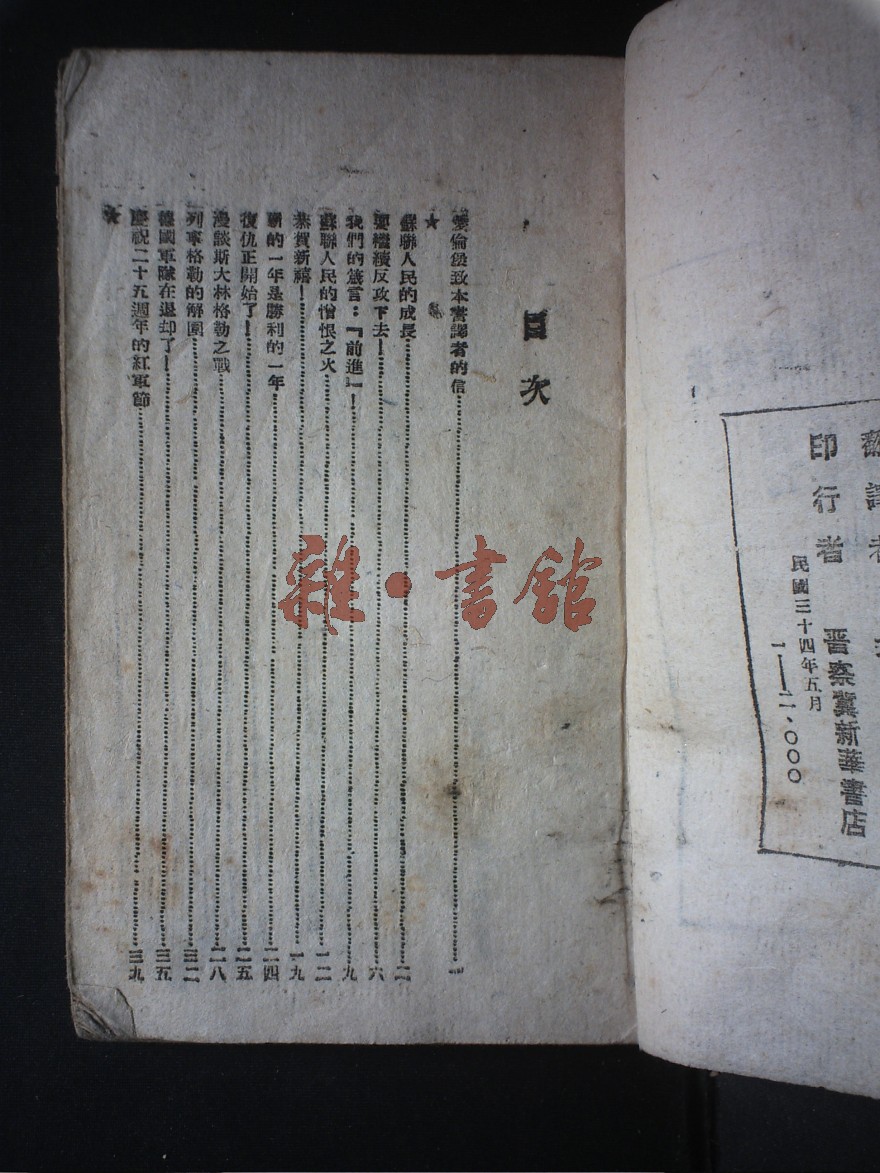 譯者
印行者 晋察冀新華書店
民國三十四年五月
一——二、〇〇〇
目次
愛倫堡致本書譯者的信 一
★
蘇聯人民的成長 二
要繼續反攻下去! 六
我們的箴言:「前進」! 九
蘇聯人民的憎恨之火 一二
恭賀新禧! 一九
新的一年是勝利的一年 二四
復仇正開始了! 二五
漫談斯大林格勒之戰 二八
列寧格勒的解圍 三二
德國軍隊在退却了! 三五
慶祝二十五週年的紅軍節 三九
★
雜·書館